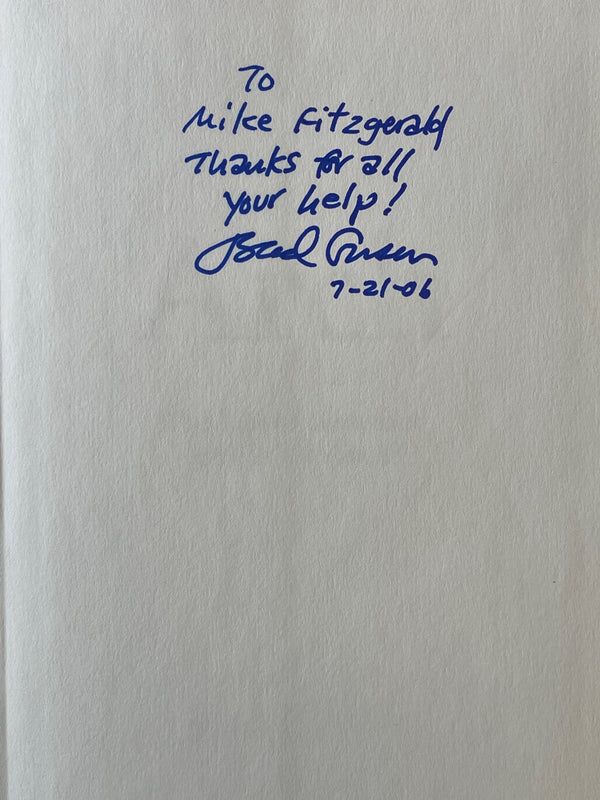 To
Mike Fitzgerald
Thanks for all
your help!
Brad
7-21-06